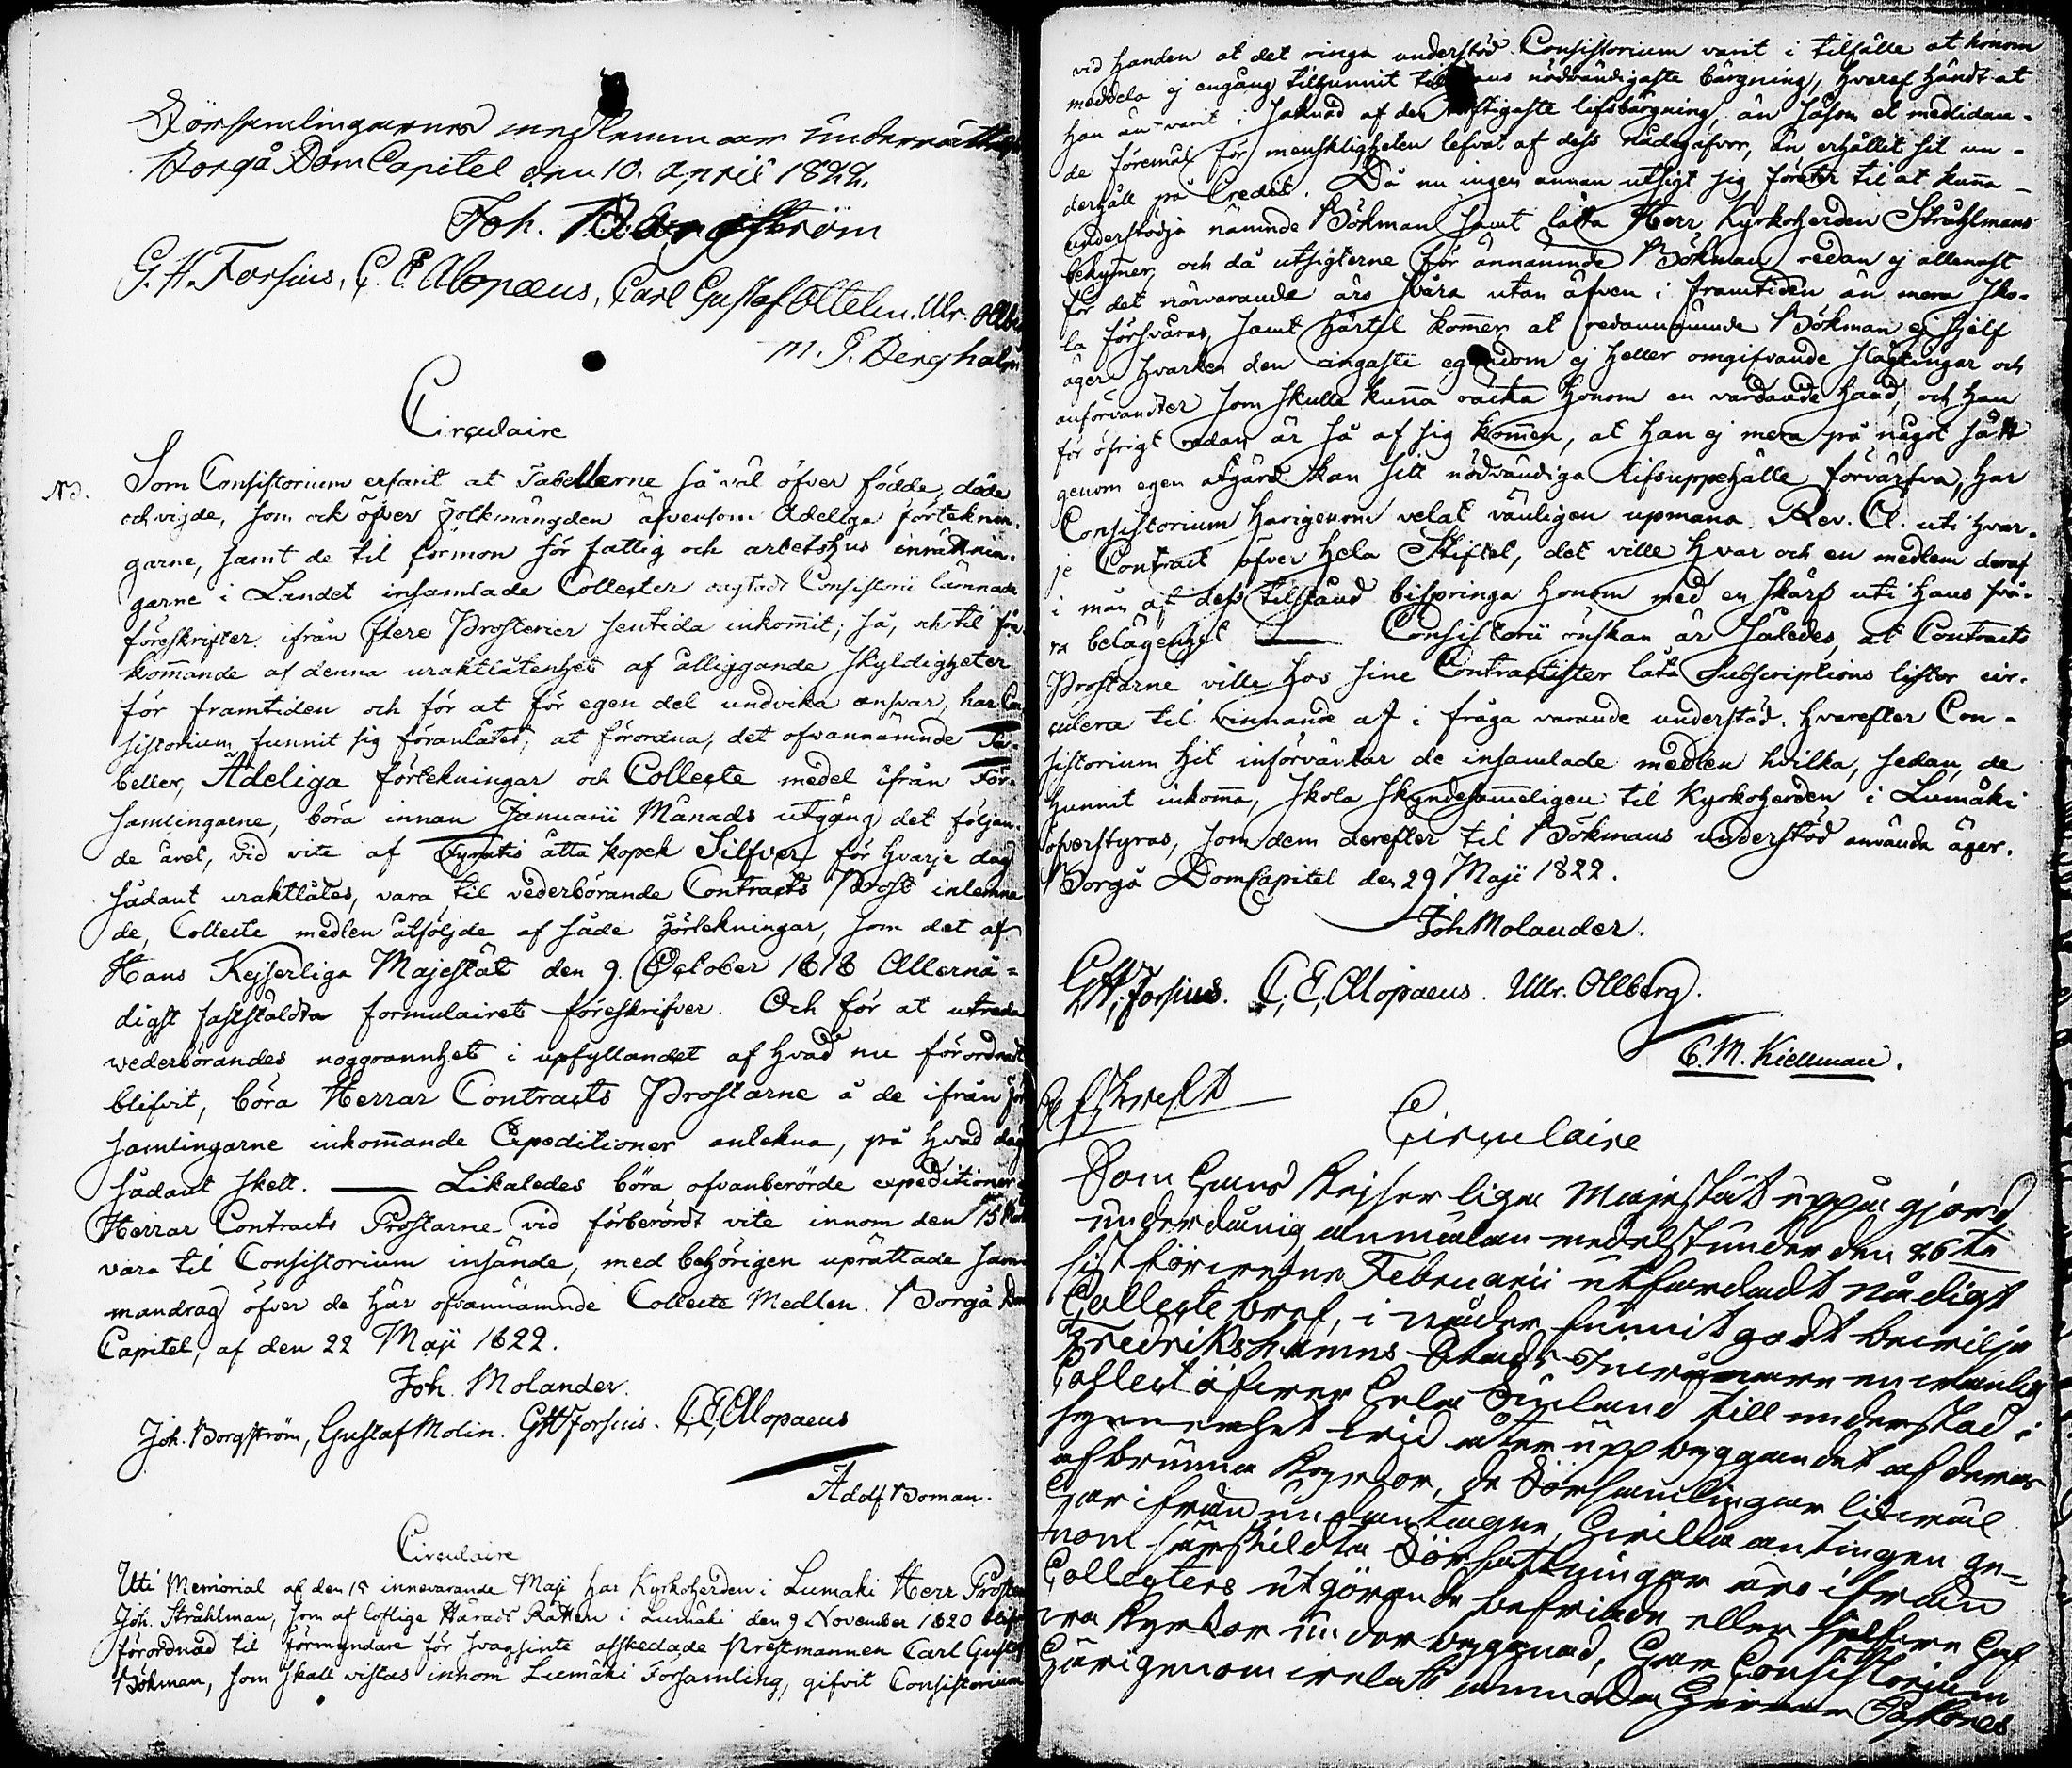 Församlingarnes medlemmar underrätta
Borgå DomCapitel den 10. April 1822.
Joh. Borgström
G. H. Forsius, C. E. Alopæus, Carl Gustaf Ottelin. Ulr. Ollbe
M. G. Bergholm
Circulaire
NB. Som Consistorium erfarit at Tabellerne så väl öfver födde, döde
och vigde, som ock öfver Folkmängden äfvensom Adeliga förteknin-
garne, samt de til förmon för fattig och arbetshus inrättnin-
garne i Landet insamlade Collecter oagtadt Consistorii lämnade
föreskrifter ifrån flere Prosterier sentida inkommit; så, och til före-
kommande af denna uraktlåtenhet afålliggande skyldigheter
för framtiden och för at för egen del undvika ansvar, har Con
sistorium funnit sig föranlåtet, at förordna, det ofvannämnde Ta-
beller, Adeliga förtekningar och Collecte medel ifrån För-
samlingarne, böra innan Januarii Månads utgång det följan-
de året, vid vite af Fyratio åtta kopek Silfver för hvarje dag
sådant uraktlåtes, vara til vederbörande Contracts Prost inlemna
de, Collecte medlen åtföljde af såde Förtekningar, som det af
Hans Kejserliga Majestät den 9. October 1818 Allernå-
digst fastställdta formulairet föreskrifver. Och för at utreda
wederbörandes noggrannhet i upfyllandet af hvad nu förordnadt
blifvit, böra Herrar Contracts Prostarne å de ifrån För
samlingarne inkommande Expeditioner antekna, på hvad dag
sådant skett. — Likaledes böra ofvanberörde expeditioner
Herrar Contracts Prostarne vid förberördt vite innom den 15
vara til Consistorium insände, med behörigen uprättade sam-
mandrag öfver de här ofvannämnde Collecte Medlen. Borgå Dom
Capitel, af den 22 Maji 1822.
Joh. Molander.
Joh. Borgström, Gustaf Molin. GHForsius. C.E.Alopaeus
Adolf Boman.
Circulaire
Uti Memorial af den 15 innevarande Maji har Kyrkoherden i Lumäki Herr Prosten
Joh. Stråhlman, som af loflige Härads Rätten i Lumäki den 9 November 1820 blif
förordnad til förmyndare för svagsinte afskedade Prestmannen Carl Gustaf
Bökman, som skall vistas innom Lumäki Församling, gifvit Consistorium
vid handen at det ringa understöd Consistorium varit i tilfälle at honom
meddela ej engång tilfunnit til hans nödvändigaste bärgning, hvaraf händt at
han än varit i saknad af den torftigaste lifsbärgning, än såsom et medlidan-
de föremål för menskligheten lefvat af dess nådegåfvor, än erhållit sit un-
derhåll på Credit. Då nu ingen annan utsigt sig företer til at kunna
understödja nämnde Bökman samt lätta Herr Kyrkoherden Stråhlmans
bekymer, och då utsigterne för ännämnde Bökman redan ej allenast
för det närvarande äro svåra utan äfven i framtiden än mera sko-
la försvåras, samt härtil kommer at redannämnde Bökman ej sjelf
äger hvarken den ringaste egendom ej heller omgifvande slägtingar och
anförvandter som skulle kunna räcka honom en vårdande hand, och han
för öfrigt redan är så af sig kommen, at han ej mera på något sätt
genom egen åtgärd kan sitt nödvändiga lifsuppehälle förvärfva; har
Consistorium härigenom velat vänligen upmana Rev. Cl. uti hvar-
je Contract öfver hela Stiftet, det ville hvar och en medlem deraf
i mån af dess tilstånd bispringa honom med en skärf uti hans svå-
ra belägenhet — Consistorii önskan är således, at Contracts
Prostarne ville hos sine Contractister låta Subscriptions listor cir-
culera til vinnande af i fråga varande understöd, hvarefter Con-
sistorium hit införväntar de insamlade medlen hvilka, sedan de
hunnit inkomma, skola skyndesammeligen til Kyrkoherden i Lumäki
öfverstyras, som dem derefter til Bökmans understöd använda äger.
Borgå DomCapitel den 29 Maji 1822.
Joh Molander.
G.H. Forsius. C. E. Alopaeus. Ulr. Ollberg.
C. M. Kiellman.
Circulaire
Som Hans Kejserliga Majestät uppå gjord
underdånig anmälan medelst under den 26te
sist förwekne Februarii utfärdadt nådigt
Collecte bref, i nåder funnit godt bewilja
Fredrikshamns Stads Inwånare en wänlig
Collect öfwer hela Finland till understöd i
synnerhet wid åter uppbyggandet af deras
afbrunna Kyrkor, de Församlingar likwäl
härifrån undantagne, hwilka antingen ge-
nom särskildta Författningar äro ifrån
Collecters utgörande befriade eller sjelfwe haf
wa Kyrkor under byggnad, har Consistorium
härigenom welat anmoda Herrar Pastores